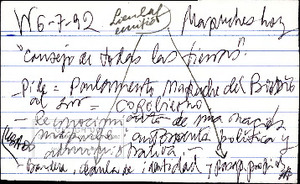 W 6-7-92 Mapuches hoy
"Consejo de todas las tierras".
- Pide = Parlamento Mapuche del Biobío
al sur = COGOBIERNO
- Reconocimiento de una nación
mapuche: autonomía política y
administrativa. -
- Bandera, cédula de identidad y